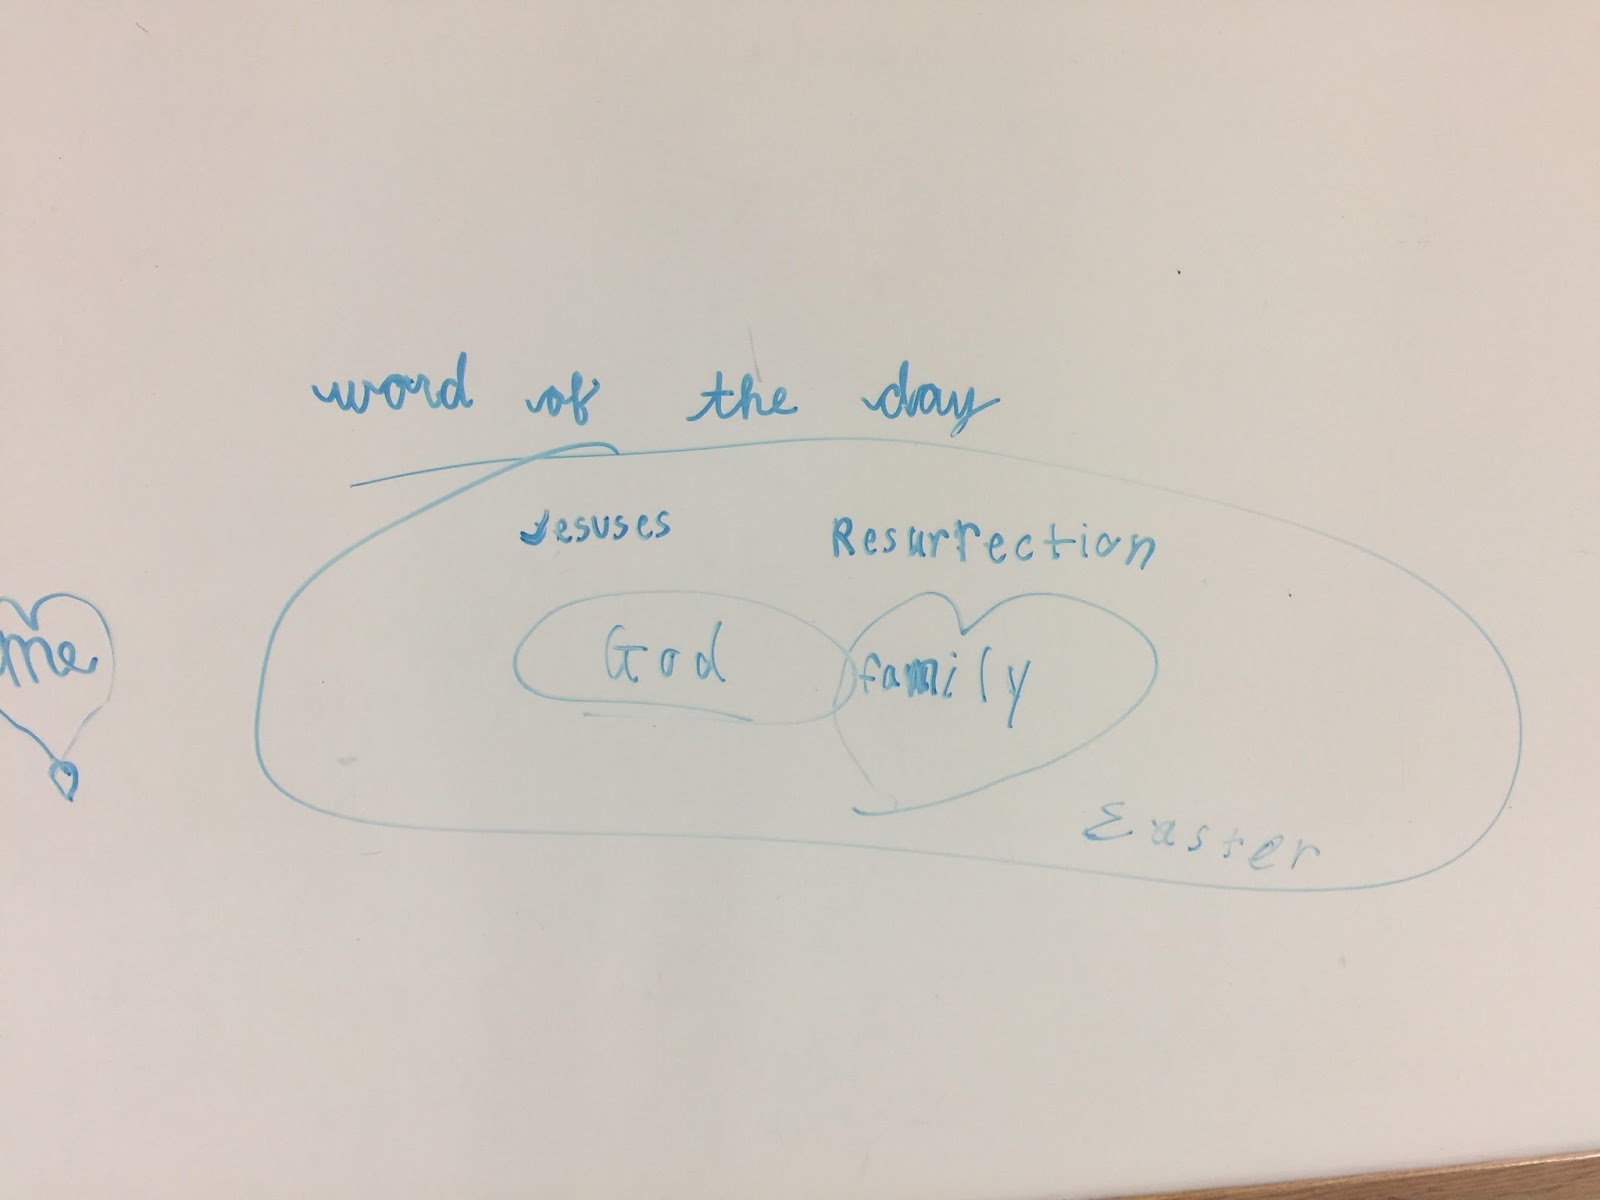 word of the day
Jesuses Resurrection
me God family
Easter